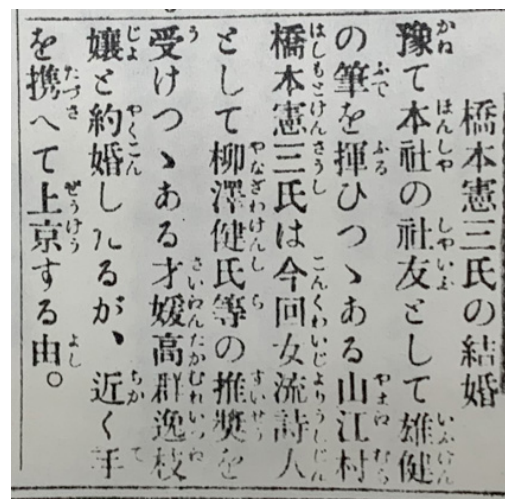 橋本憲三氏の結婚
豫て本社の社友として雄健
の筆を揮ひつゝある山江村
橋本憲三氏は今回女流詩人
として柳澤健氏等の推奬を
受けつゝある才媛高群逸枝
孃と約婚したるが、近く手
を携へて上京する由。